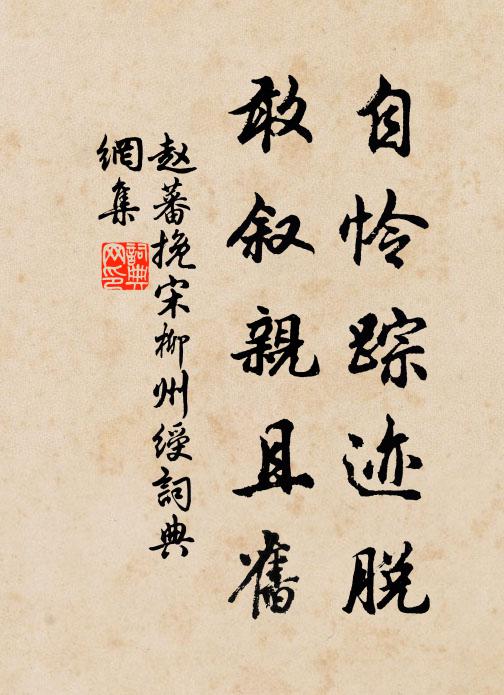 自怜踪迹脱
敢叙親且舊
赵蕃挽宋柳州绶詞典
網集
詞典
网印